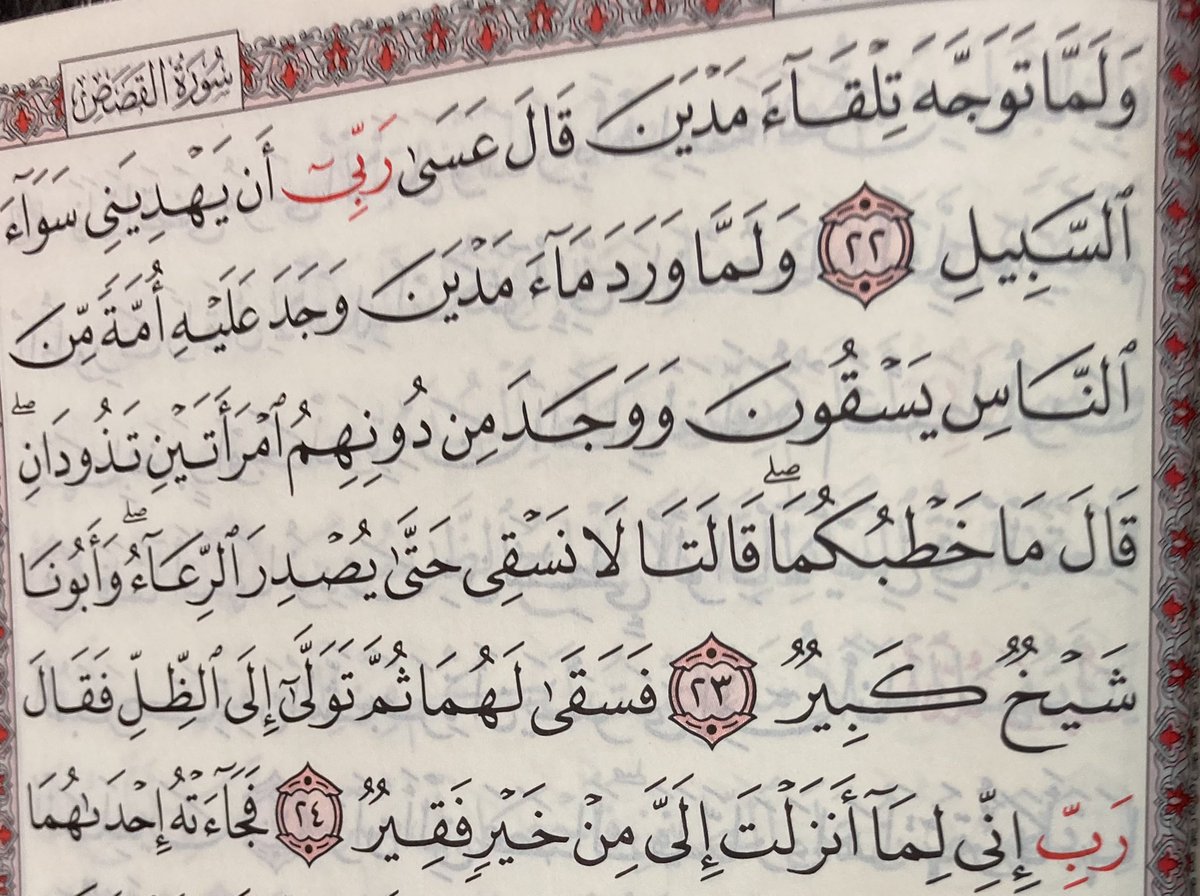 سُورَةُ القَصَصِ
وَلَمَّا تَوَجَّهَ تِلْقَآءَ مَدْيَنَ قَالَ عَسَىٰ رَبِّىٓ أَن يَهْدِيَنِى سَوَآءَ
ٱلسَّبِيلِ ٢٢ وَلَمَّا وَرَدَ مَآءَ مَدْيَنَ وَجَدَ عَلَيْهِ أُمَّةً مِّنَ
ٱلنَّاسِ يَسْقُونَ وَوَجَدَ مِن دُونِهِمُ ٱمْرَأَتَيْنِ تَذُودَانِ ۖ
قَالَ مَا خَطْبُكُمَا ۖ قَالَتَا لَا نَسْقِى حَتَّىٰ يُصْدِرَ ٱلرِّعَآءُ ۖ وَأَبُونَا
شَيْخٌ كَبِيرٌ ٢٣ فَسَقَىٰ لَهُمَا ثُمَّ تَوَلَّىٰٓ إِلَى ٱلظِّلِّ فَقَالَ
رَبِّ إِنِّى لِمَآ أَنزَلْتَ إِلَىَّ مِنْ خَيْرٍ فَقِيرٌ ٢٤ فَجَآءَتْهُ إِحْدَىٰهُمَا